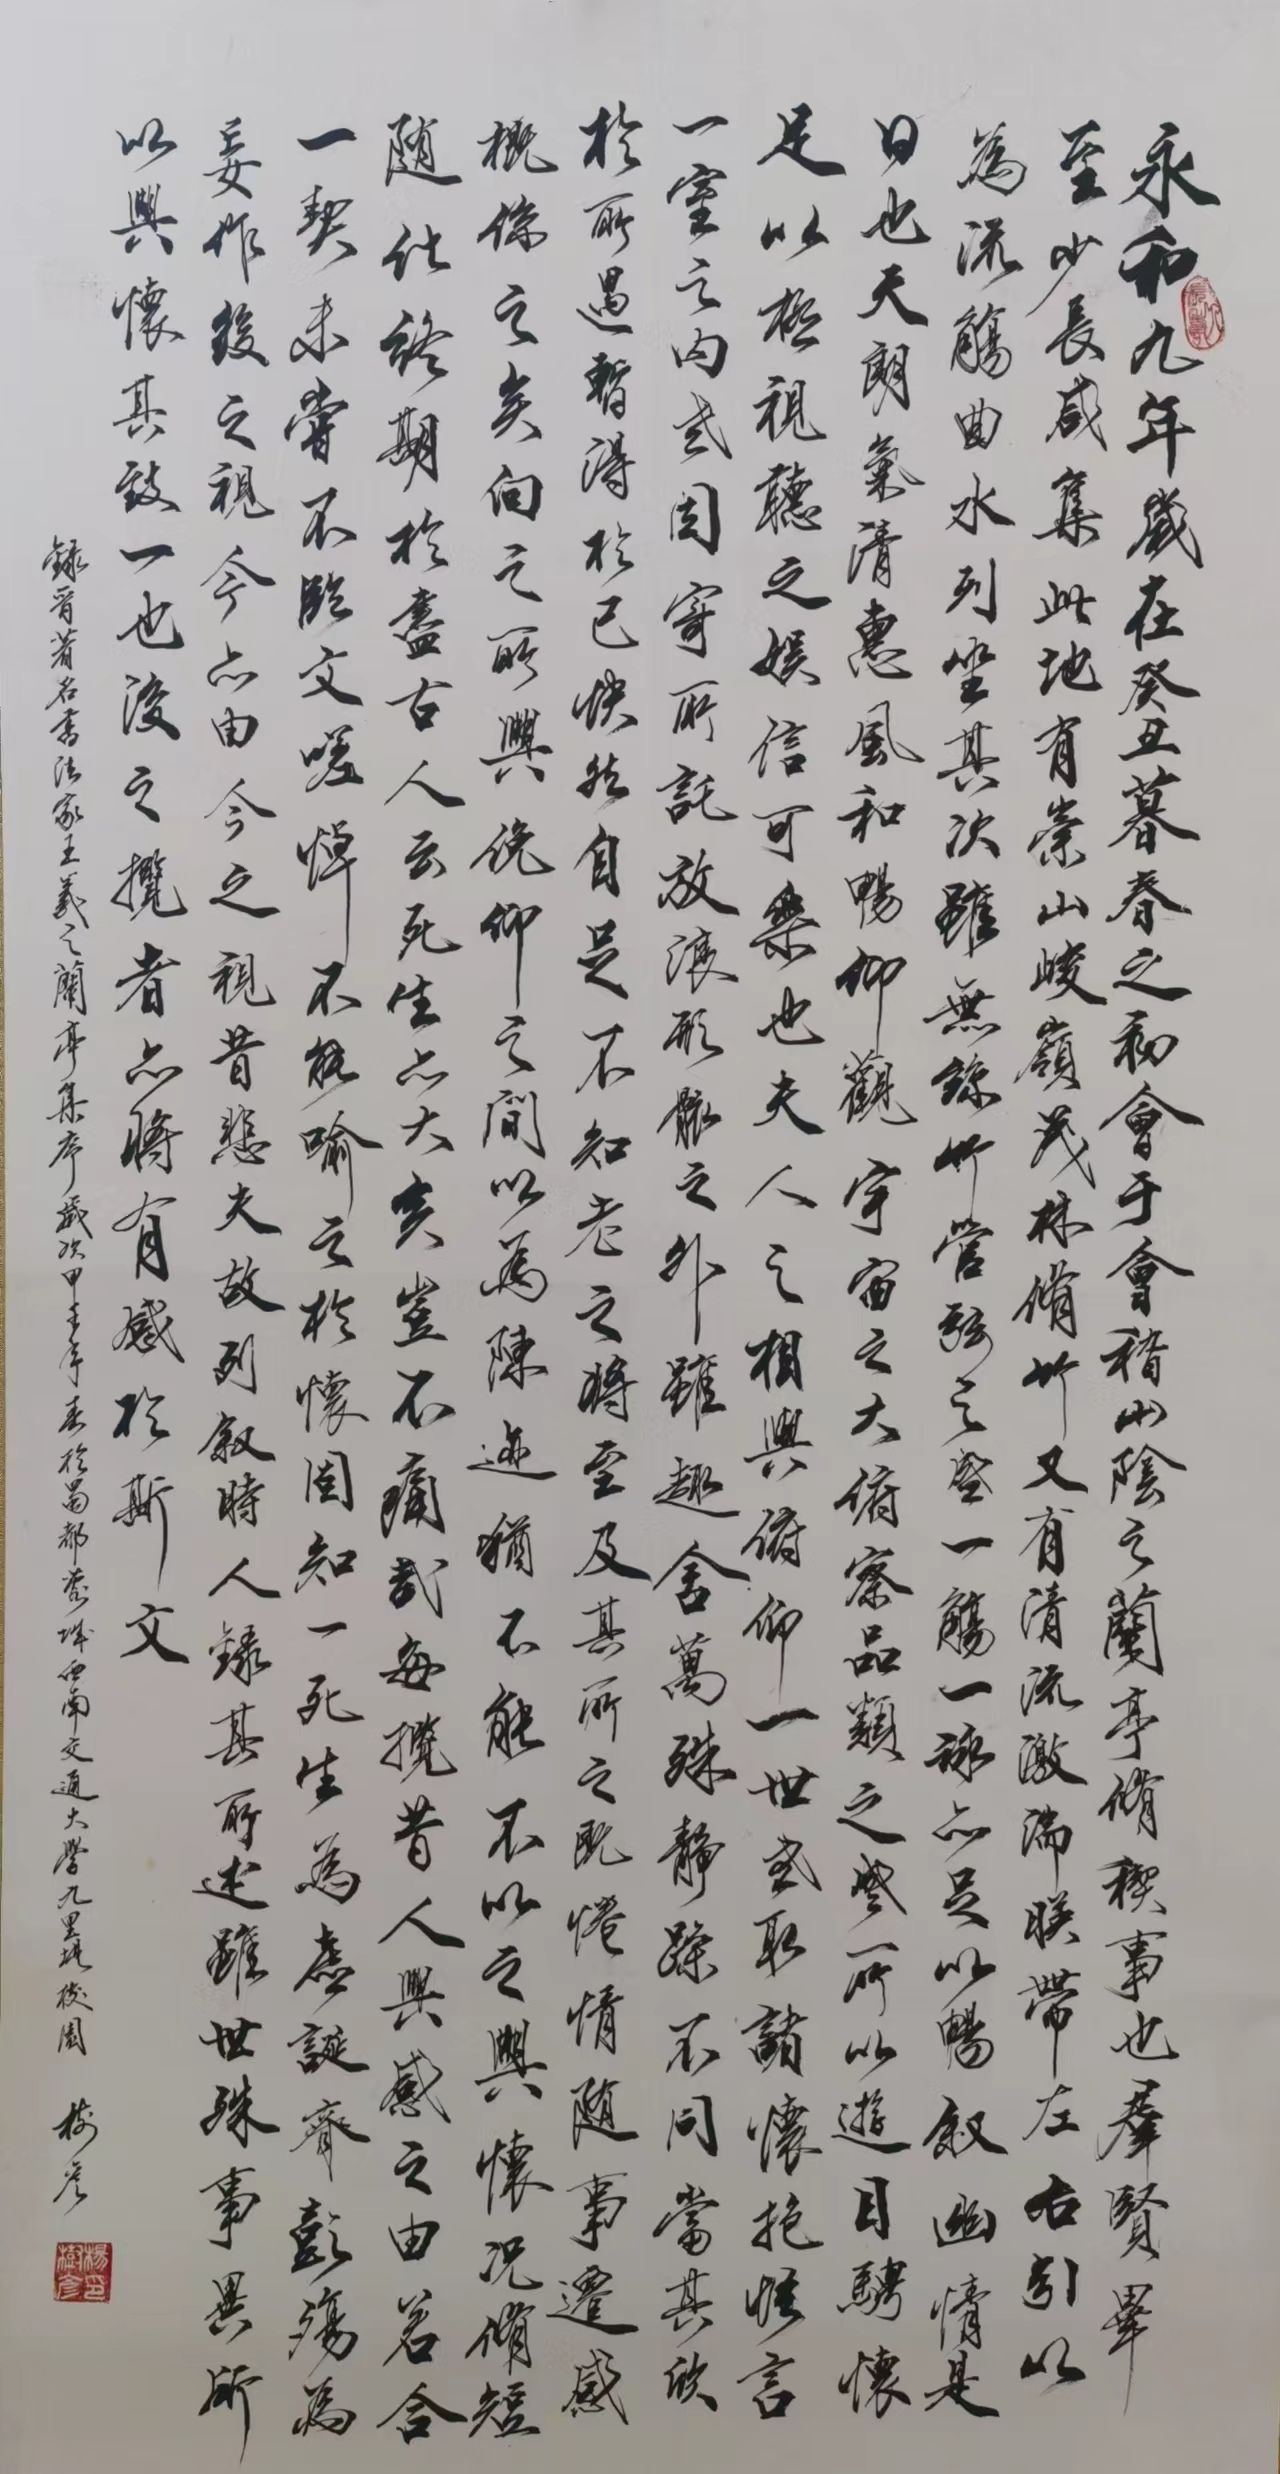 永和九年歲在癸丑暮春之初會于會稽山陰之蘭亭脩稧事也羣賢畢
至少長咸集此地有崇山峻嶺茂林脩竹又有清流激湍暎帶左右引以
為流觴曲水列坐其次雖無絲竹管弦之盛一觴一詠亦足以暢敘幽情是
日也天朗氣清惠風和暢仰觀宇宙之大俯察品類之盛所以遊目騁懷
足以極視聽之娛信可樂也夫人之相與俯仰一世或取諸懷抱悟言
一室之內或因寄所託放浪形骸之外雖趣舍萬殊靜躁不同當其欣
於所遇暫得於己快然自足不知老之將至及其所之既惓情隨事遷感
概係之矣向之所興俛仰之間以為陳迹猶不能不以之興懷況脩短
隨化終期於盡古人云死生亦大矣豈不痛哉每攬昔人興感之由若合
一契未嘗不臨文嗟悼不能喻之於懷固知一死生為虛誕齊彭殤為
妄作後之視今亦由今之視昔悲夫故列敘時人錄其所述雖世殊事異所
以興懷其致一也後之攬者亦將有感於斯文
錄晉著名書法家王羲之蘭亭集序歲次甲壬年春於蜀都蓉城西南交通大學九里堤校園 樹彥
楊樹彥印